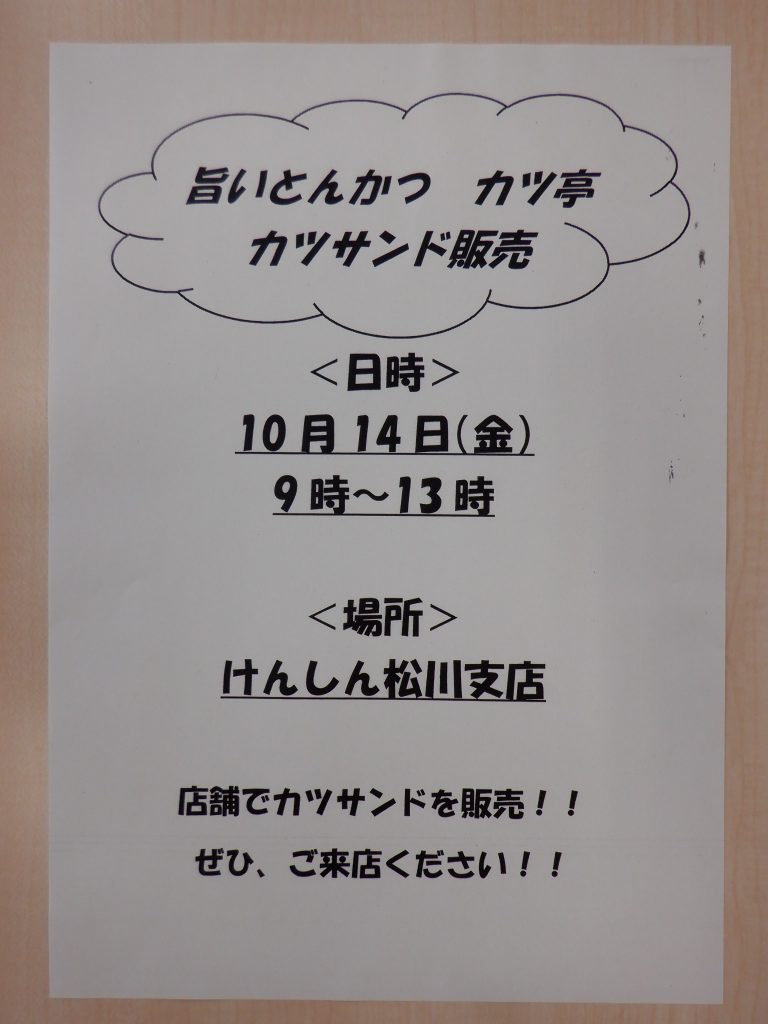 旨いとんかつ　カツ亭
カツサンド販売
＜日時＞
10月14日(金)
9時～13時
＜場所＞
けんしん松川支店
店舗でカツサンドを販売！！
ぜひ、ご来店ください！！